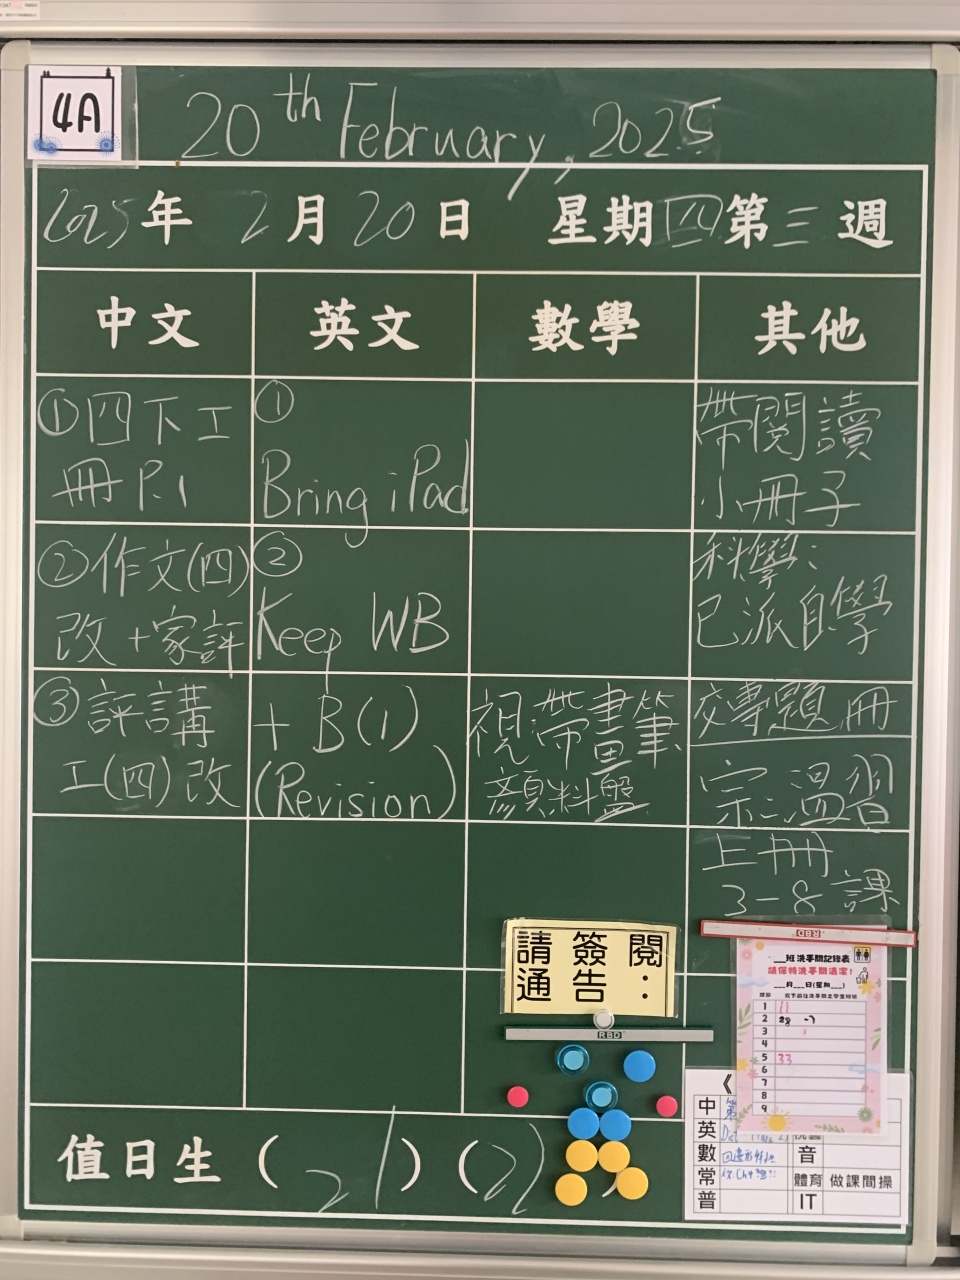 4A
20th February, 2025
2025年 2月20日 星期四第三週
中文
英文
數學
其他
①四下工
冊P.1
②作文(四)
改+家評
③評講
工(四)改
①
Bring iPad
②
Keep WB
+ B(1)
(Revision)
視:帶畫筆
顏料盤
帶閱讀
小冊子
科學:
已派自學
交專題冊
宗:溫習
上冊
3-8課
請簽閱
通告:
RBD
RBD
班洗手間記錄表
請保持洗手間清潔!
月 日(星期 )
1 11
2 28 -7
3
4
5 33
6
7
8
9
《
中 第
英
數
常
普
音
體育 做課間操
IT
值日生(21)(22)